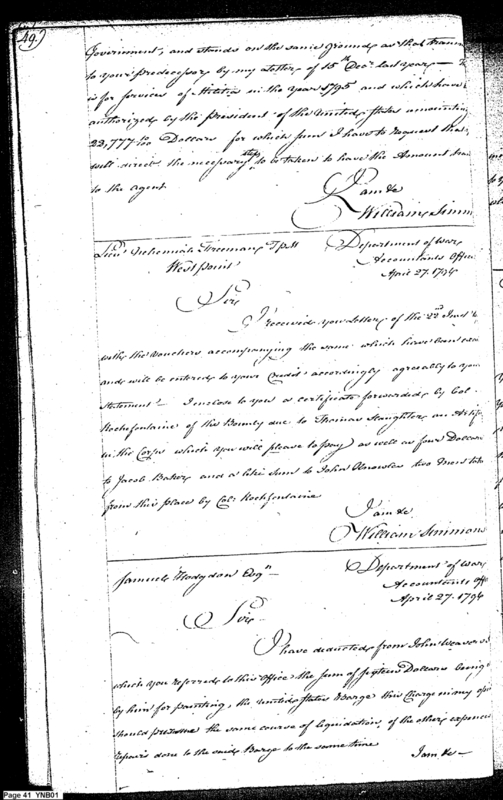 49.
Government, and stands on the same ground, as that
to your predecessor by my Letter of 15th Decr last year —
is for services of Militia in the year 1795 and which have
authorized by the President of the United States amounting
22,777 Dollars for which sum I have to request that
will direct the necessary steps to be taken to have the Amount
to the agent.
I am &c
William Simm
Lieut Nehemiah Freeman, P M
West point
Department of War,
Accountants Office
April 27. 1796
Sir
I received your Letter of the 22d Inst
with the vouchers accompanying the same which have been
and will be entered to your Credit accordingly agreeably to your
statement — I inclose to you a certificate forwarded by Col.
Rochefontaine of the Bounty due to Thomas Slaughter, an Artif
in the Corps which you will please to pay as well as four Dollars
to Jacob Baker, and a like sum to John Knowles two men
from this place by Col. Rochfontaine
I am &c
William Simmons
Samuel Hodgdon Esqr
Department of War
Accountants Off
April 27. 1796
Sir
I have deducted from John Weaver
which you referred to this Office the sum of fifteen Dollars being
by him for painting, the United States Barge this Charge in my
should presume the same course of liquidation, of the other expences
repairs done to the said Barge to the same time
I am &c —
Page 41 YNB01